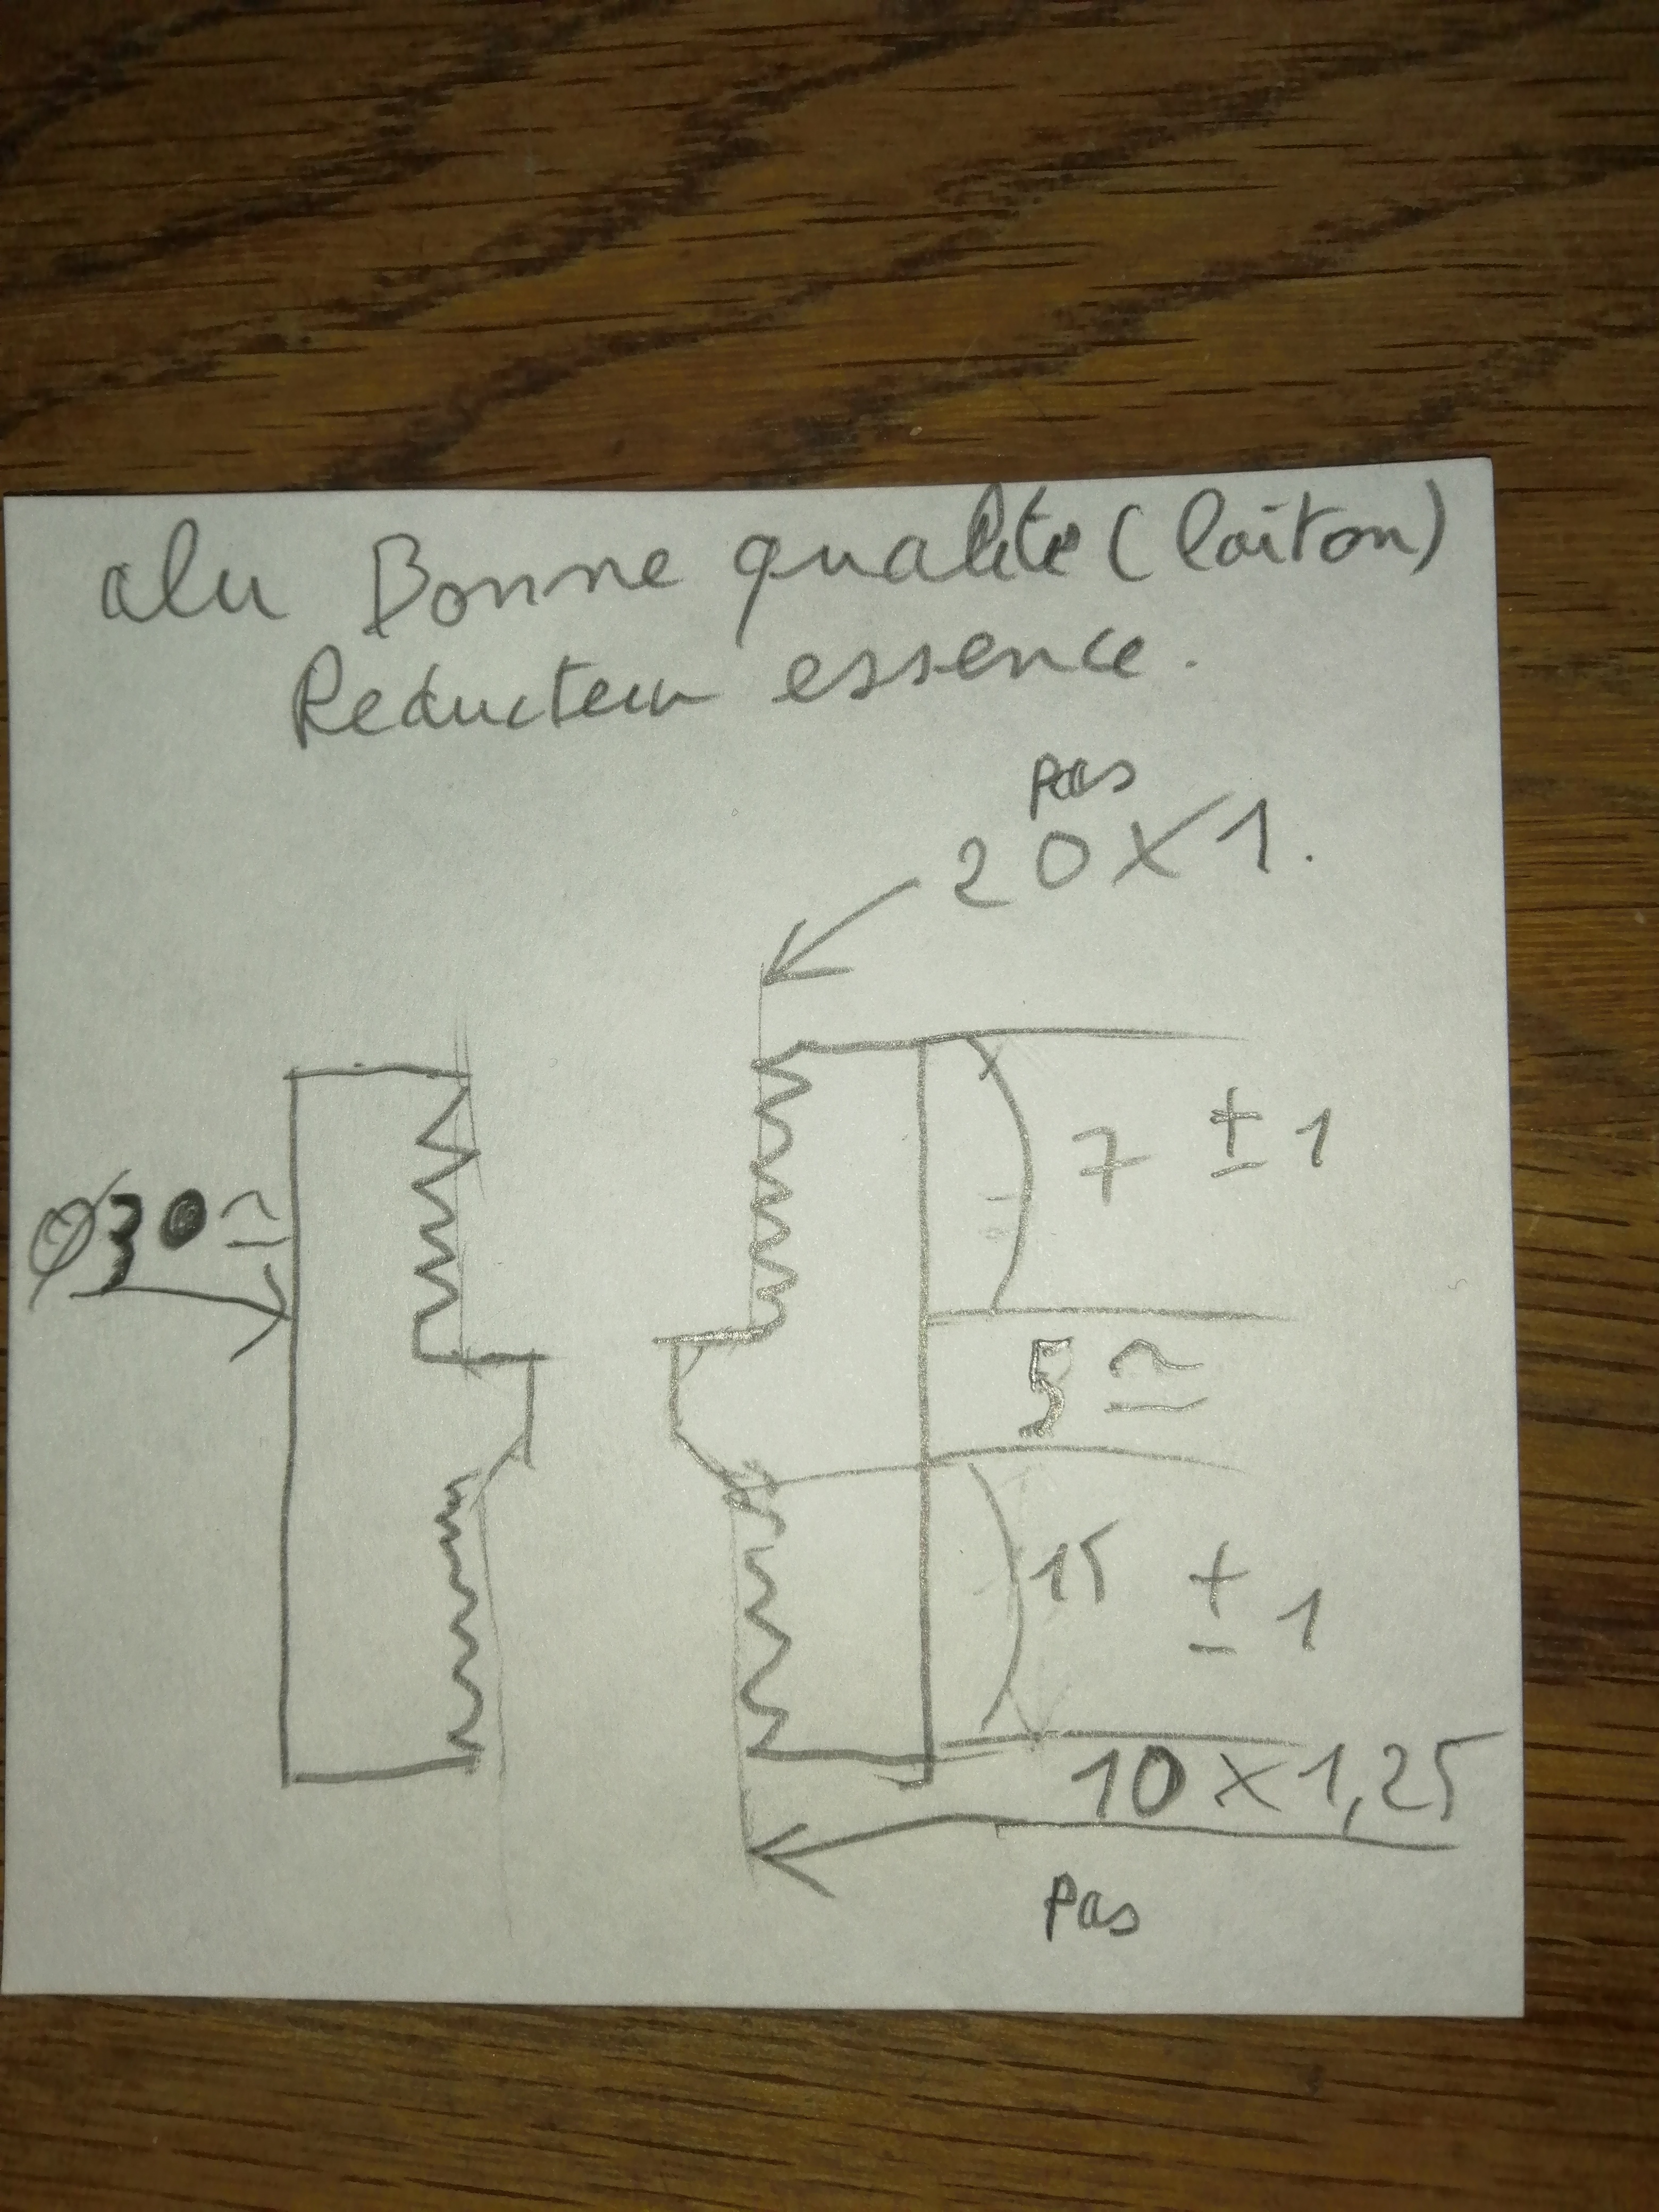 alu Bonne qualité (laiton)
Reducteur essence.
pas
20 X 1.
7 ± 1
Ø30 ≃
5 ≃
15 ± 1
10 X 1,25
Pas